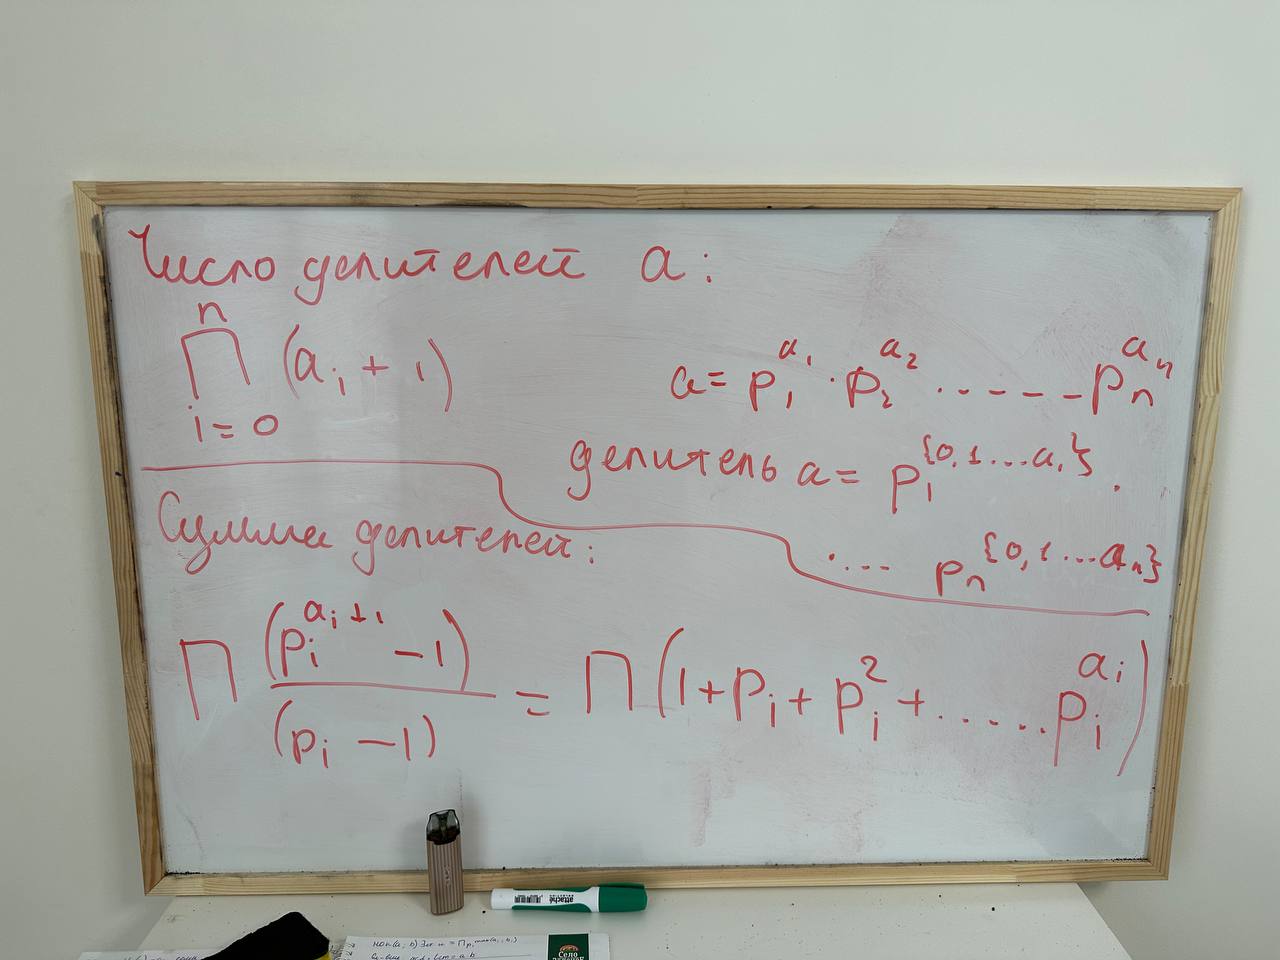 Число делителей a:
n
∏ (aᵢ + 1)
i = 0
a = p₁^a₁ · p₂^a₂ · - - - - - pₙ^aₙ
делитель a = p₁^{0,1...a₁} ·
· ... pₙ^{0,1...aₙ}
Сумма делителей:
∏ (pᵢ^aᵢ+1 − 1) / (pᵢ − 1) = ∏ (1 + pᵢ + pᵢ² + ...... pᵢ^aᵢ)
attaché
Село